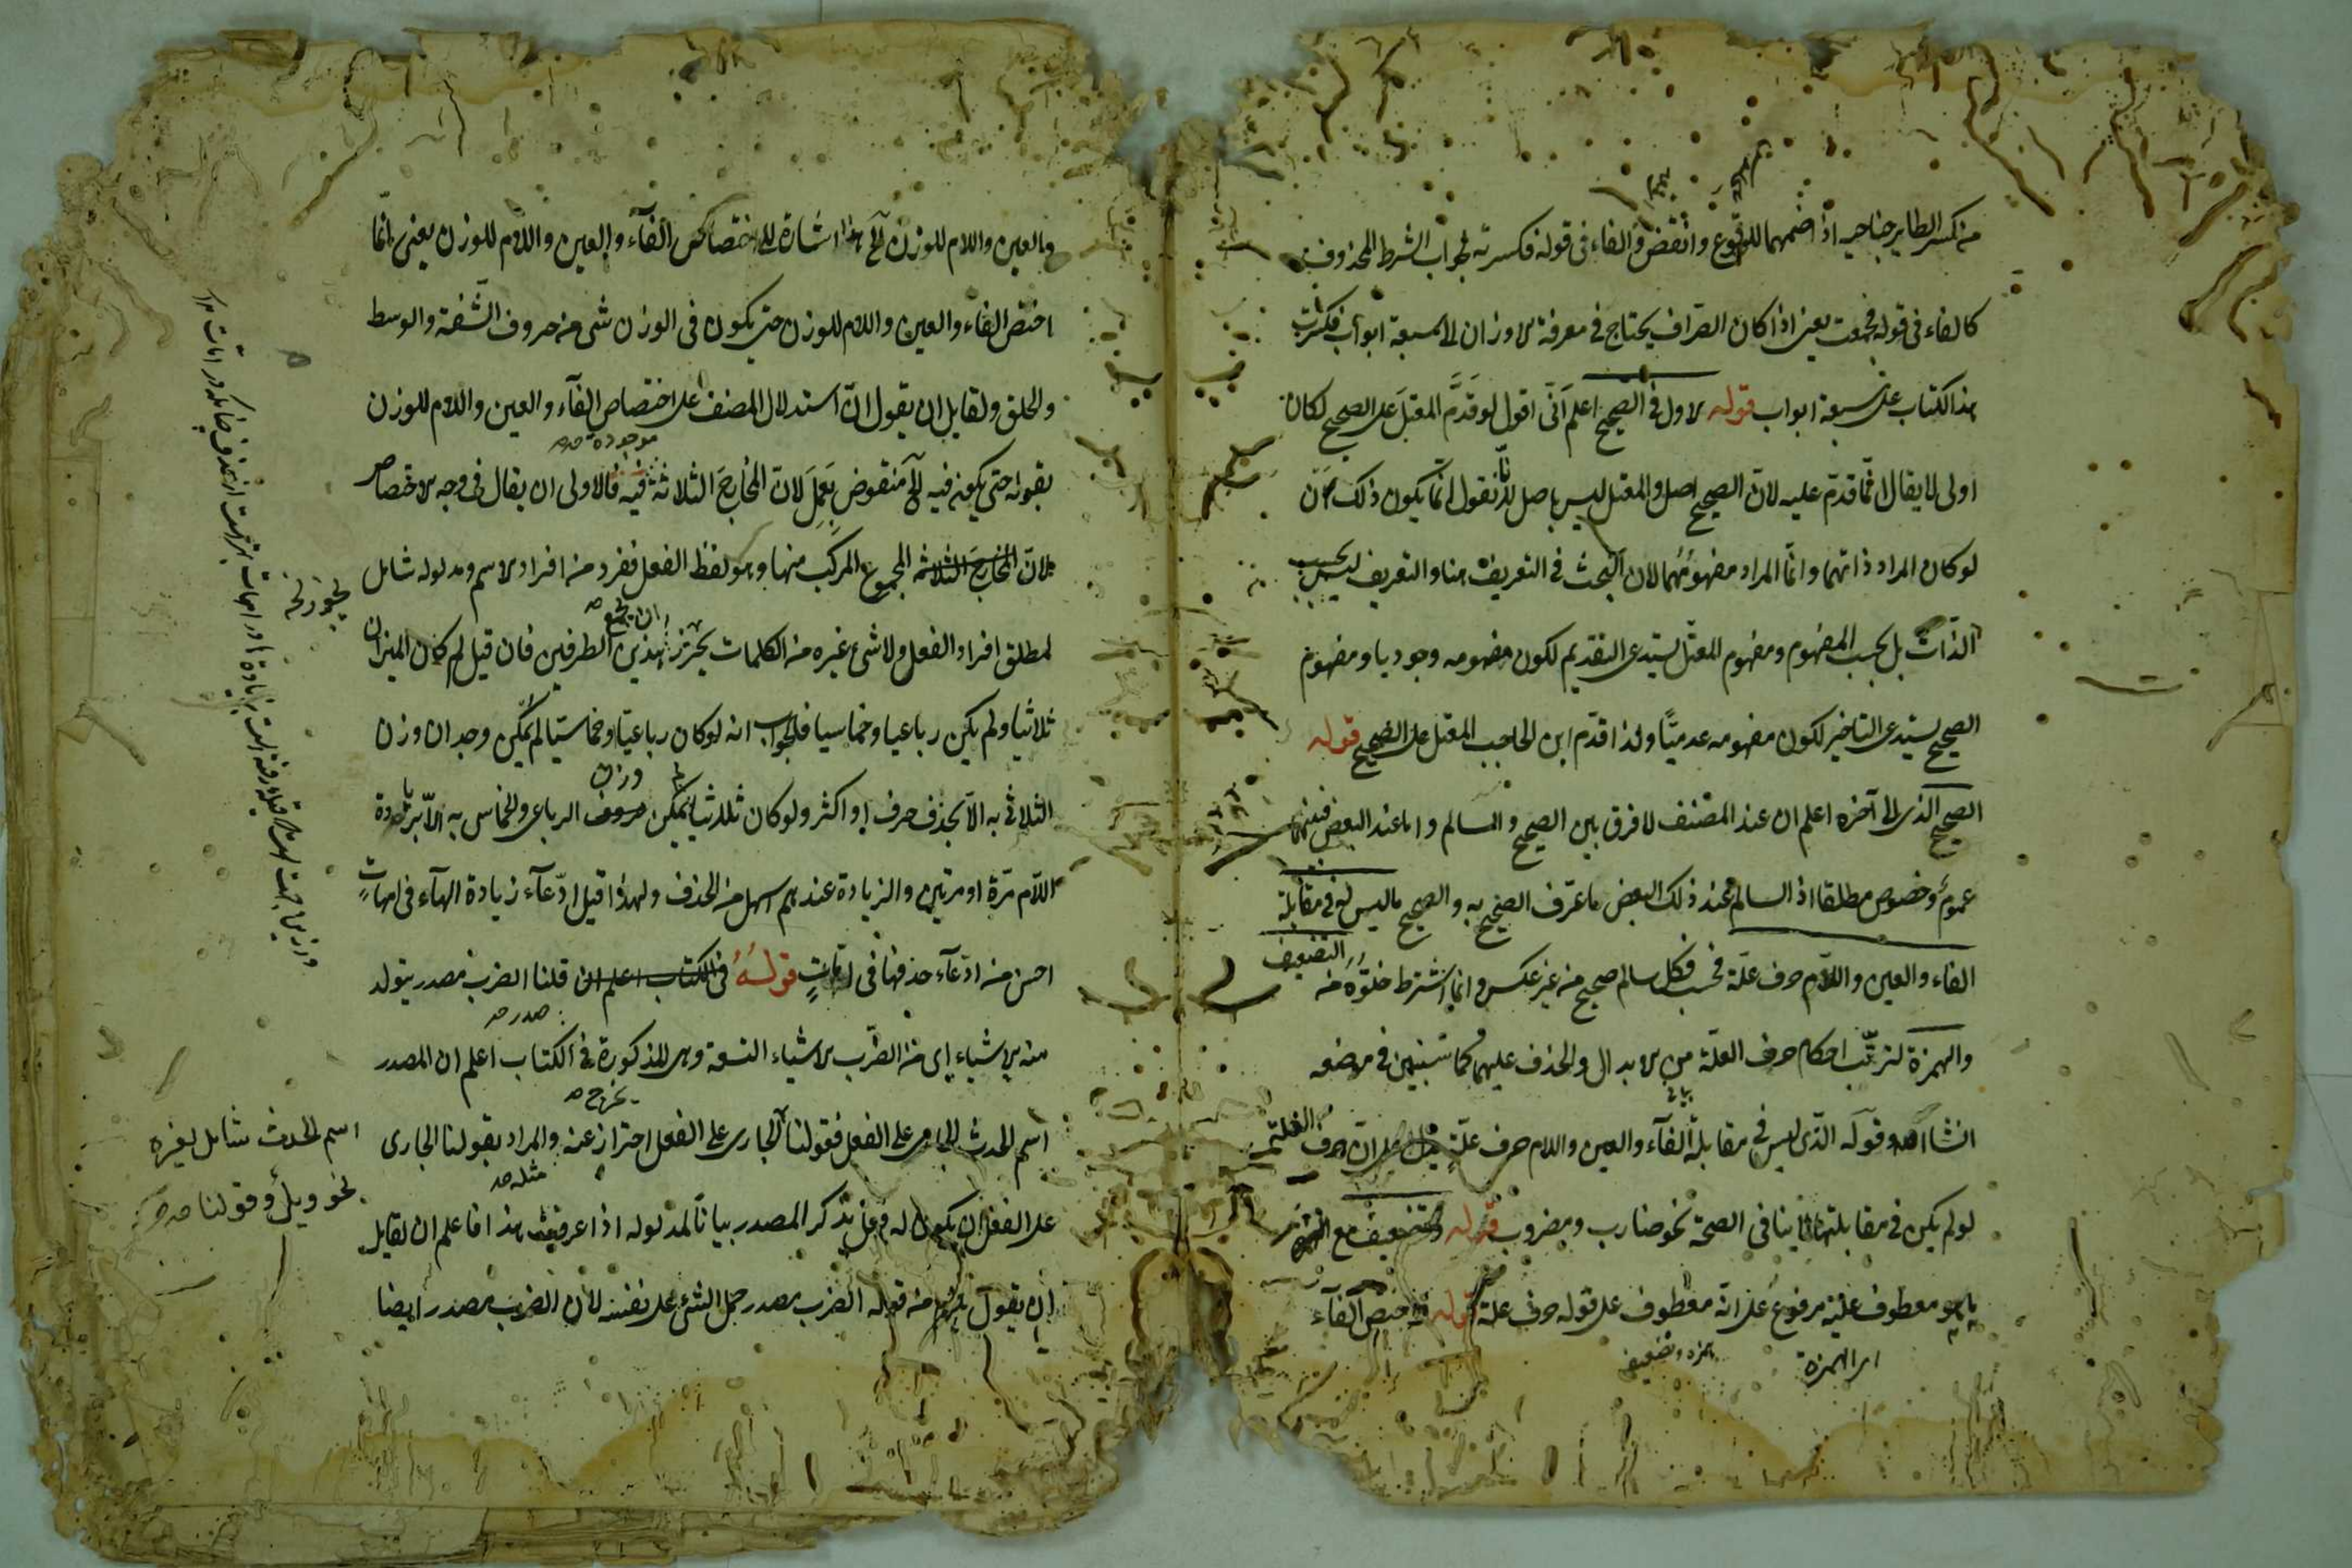 من كسر الطاير جناحيه اذا ضمهما للوقوع وانقض والفاء فى قوله فكسرته لجواب الشرط المحذوف
كالفاء فى قوله فجمعت يعنى اذا كان الصراف يحتاج فى معرفة الاوزان الى سبعة ابواب فكسرت
هذا الكتاب على سبعة ابواب قوله الاول فى الصحيح اعلم انى اقول لو قدم المعتل على الصحيح لكان
اولى لا يقال انما قدم عليه لان الصحيح اصل والمعتل ليس باصل لانا نقول انما يكون ذلك ان
لو كان المراد ذاتهما وانما المراد مفهومهما لان البحث فى التعريف هنا والتعريف ليس بحسب
الذات بل بحسب المفهوم ومفهوم المعتل يستدعى التقديم لكون مفهومه وجوديا ومفهوم
الصحيح يستدعى التاخير لكون مفهومه عدميا ولذا قدم ابن الحاجب المعتل على الصحيح قوله
الصحيح الذى الى آخره اعلم ان عند المصنف لا فرق بين الصحيح والسالم واما عند البعض فبينهما
عموم وخصوص مطلقا اذ السالم عند ذلك البعض ما عرف الصحيح به والصحيح ما ليس فى مقابلة
الفاء والعين واللام حرف علة فحسب فكل سالم صحيح من غير عكس وانما اشترط خلوه من التضعيف
والهمزة لترتب احكام حرف العلة من الابدال والحذف عليهما كما سنبين فى موضعه
انشاالله وقوله الذى ليس فى مقابلة الفاء والعين واللام حرف علة يدل على ان حرف العلة
لو لم يكن فى مقابلتها لا ينافى الصحة نحو ضارب ومضروب قوله وتضعيف مع
معطوف عليه مرفوع على انه معطوف على قوله حرف علة قوله اختص الفاء
اى الهمزة
همزه وتضعيف
والعين واللام للوزن الخ هذا اشارة الى اختصاص الفاء والعين واللام للوزن يعنى انما
اختص الفاء والعين واللام للوزن حتى يكون فى الوزن شى من حروف الشفة والوسط
والحلق ولقايل ان يقول ان استدلال المصنف على اختصاص الفاء والعين واللام للوزن
موجودة صح
بقوله حتى يكون فيه الخ منقوض بعمل لان المخارج الثلاثة فيه فالاولى ان يقال فى وجه الاختصاص
لان المخارج الثلاثة المجموع المركب منها وهو لفظ الفعل ففرد من افراد الاسم ومدلوله شامل
لمطلق افراد الفعل ولا شى غيره من الكلمات يحرز ان يجمع هذين الطرفين فان قيل لم كان الميزان
ثلاثيا ولم يكن رباعيا وخماسيا فالجواب انه لو كان رباعيا وخماسيا لم يمكن وجدان وزن
الثلاثى به الا بحذف حرف او اكثر ولو كان ثلاثيا يمكن وزن الرباعى والخماسى به الا بزيادة
اللام مرة او مرتين والزيادة عندهم اسهل من الحذف ولهذا قيل ادعاء زيادة الهاء فى امهات
احسن من ادعاء حذفها فى امات قوله فى الكتاب اعلم ان قلنا الضرب مصدر يتولد
منه الاشياء اى من الضرب الاشياء التسعة وهى المذكورة فى الكتاب اعلم ان المصدر
اسم الحدث الجارى على الفعل فقولنا الجارى على الفعل احتراز عنه والمراد بقولنا الجارى
على الفعل ان يكون له فعل يذكر المصدر بيانا لمدلوله اذا عرفت هذا فاعلم ان لقايل
ان يقول يلزم من قوله الضرب مصدر حمل الشئ على نفسه لان الضرب مصدر ايضا
اسم الحدث شامل لغيره
نحو ويل وقولنا صح